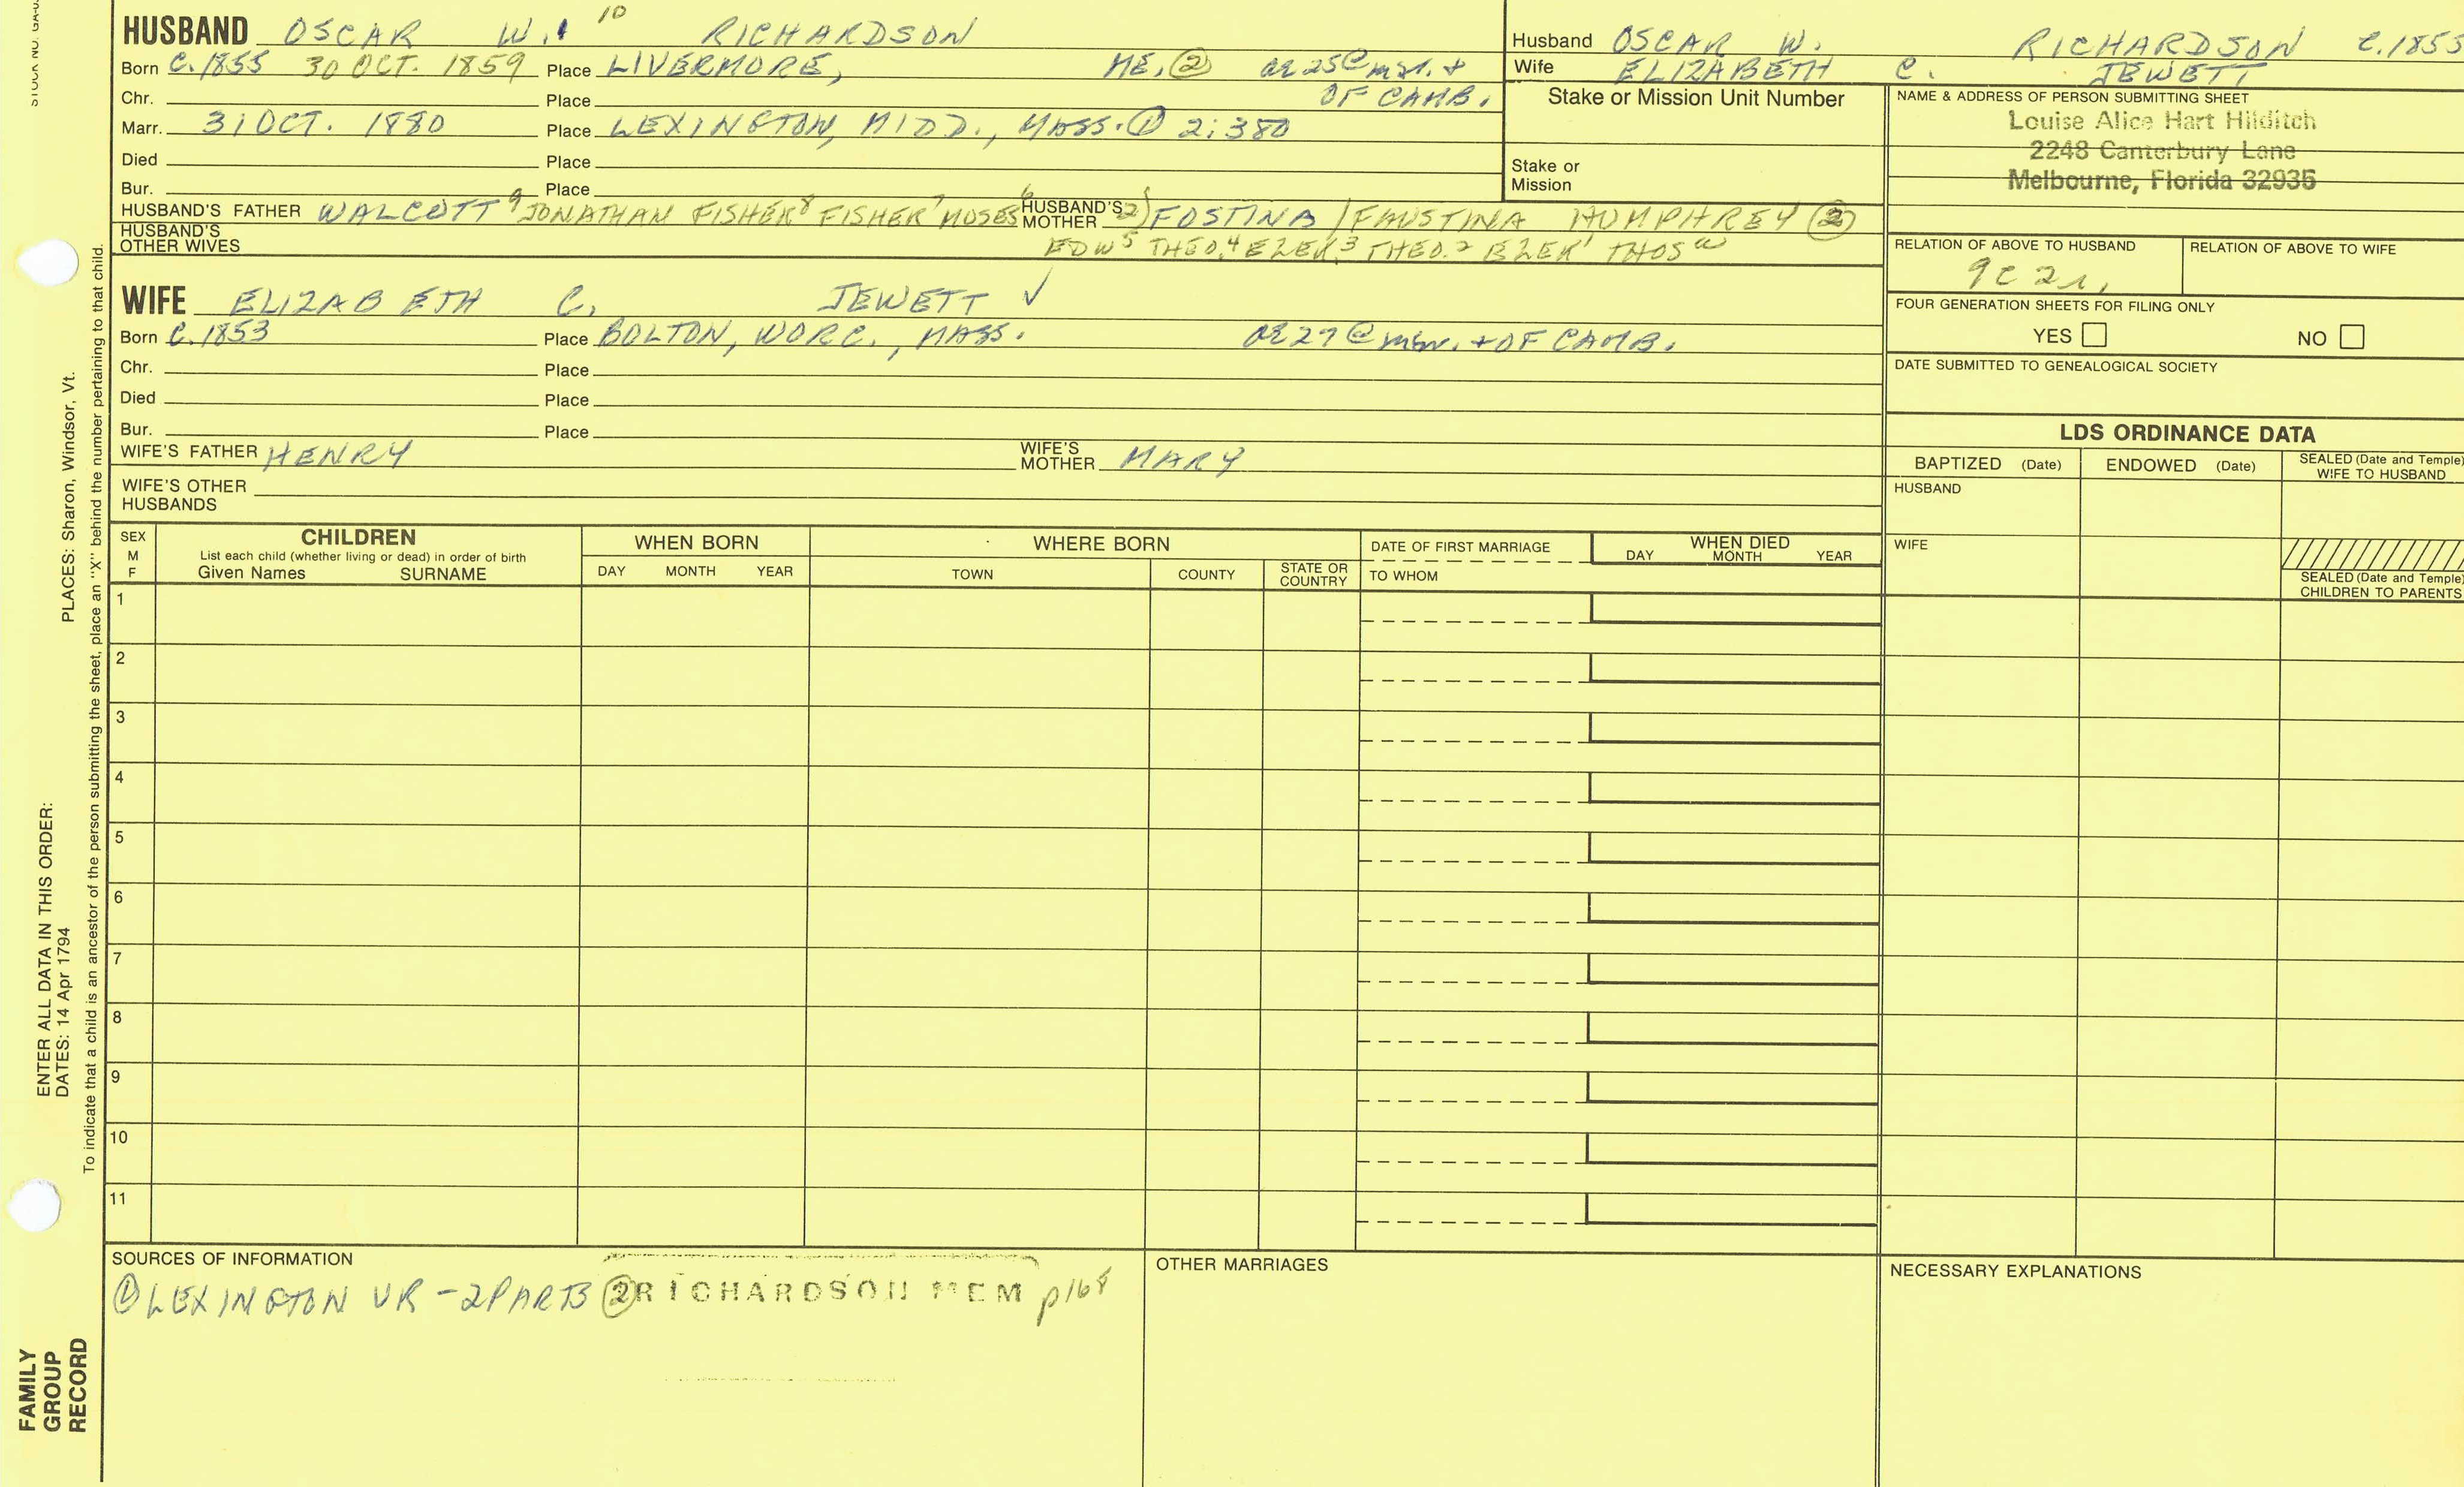 STOCK NO. GA-0
HUSBAND OSCAR W. 10 RICHARDSON
Born C.1855 30 OCT. 1859 Place LIVERMORE, ME, ② ae 25 @ mar. +
Chr. Place OF CAMB.
Marr. 31 OCT. 1880 Place LEXINGTON, MIDD., MASS. ① 2:380
Died Place
Bur. Place
HUSBAND'S FATHER WALCOTT 9 JONATHAN FISHER 8 FISHER 7 MOSES 6 HUSBAND'S MOTHER 2) FOSTINA / FAUSTINA HUMPHREY ②
HUSBAND'S OTHER WIVES EDW 5 THEO. 4 EZEK. 3 THEO. 2 EZEK 1 THOS a
WIFE ELIZABETH C. JEWETT ✓
Born C.1853 Place BOLTON, WORC., MASS. ae 27 @ mar. + OF CAMB.
Chr. Place
Died Place
Bur. Place
WIFE'S FATHER HENRY WIFE'S MOTHER MARY
WIFE'S OTHER HUSBANDS
Husband OSCAR W. RICHARDSON C.1855
Wife ELIZABETH C. JEWETT
Stake or Mission Unit Number
Stake or Mission
NAME & ADDRESS OF PERSON SUBMITTING SHEET
Louise Alice Hart Hilditch
2248 Canterbury Lane
Melbourne, Florida 32935
RELATION OF ABOVE TO HUSBAND RELATION OF ABOVE TO WIFE
9C 2r.
FOUR GENERATION SHEETS FOR FILING ONLY
YES NO
DATE SUBMITTED TO GENEALOGICAL SOCIETY
LDS ORDINANCE DATA
BAPTIZED (Date) ENDOWED (Date) SEALED (Date and Temple) WIFE TO HUSBAND
HUSBAND
WIFE
SEALED (Date and Temple) CHILDREN TO PARENTS
SEX M F
CHILDREN
List each child (whether living or dead) in order of birth
Given Names SURNAME
WHEN BORN
DAY MONTH YEAR
WHERE BORN
TOWN COUNTY STATE OR COUNTRY
DATE OF FIRST MARRIAGE
TO WHOM
WHEN DIED
DAY MONTH YEAR
1
2
3
4
5
6
7
8
9
10
11
SOURCES OF INFORMATION
① LEXINGTON VR - 2 PARTS ② RICHARDSON MEM p168
OTHER MARRIAGES
NECESSARY EXPLANATIONS
PLACES: Sharon, Windsor, Vt.
To indicate that a child is an ancestor of the person submitting the sheet, place an "X" behind the number pertaining to that child.
ENTER ALL DATA IN THIS ORDER:
DATES: 14 Apr 1794
FAMILY
GROUP
RECORD